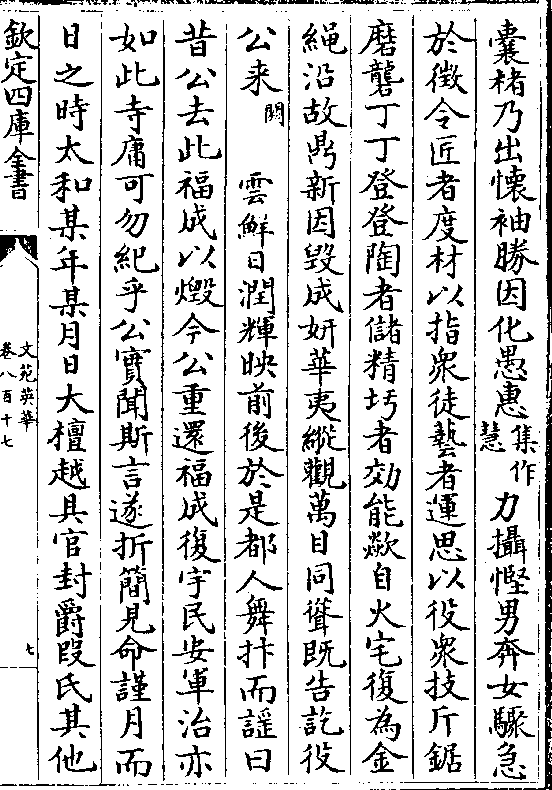 囊楮乃出懐袖勝因化愚惠集作慧力攝慳男奔女驟急
於徵令匠者度材以指衆徒藝者運思以役衆技斤鋸
磨礱丁丁登登陶者儲精圬者効能歘自火宅復為金
繩沿故鼎新因毀成妍華夷縱觀萬目同聳既告訖役
公来闕雲鮮日潤輝映前後於是都人舞抃而謡曰
昔公去此福成以燬今公重還福成復宇民安軍治亦
如此寺庸可勿紀乎公實聞斯言遂折簡見命謹月而
日之時太和某年某月日大檀越具官封爵叚氏其他
欽定四庫全書
文苑英華
卷八百十七
七